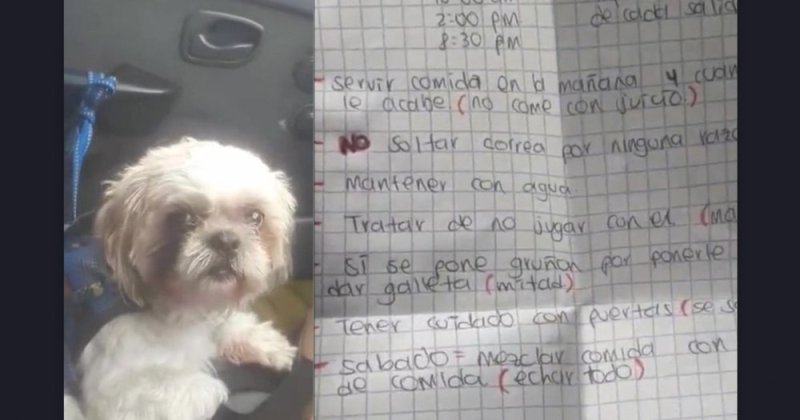 2:00 pm
de cada salid
8:30 pm
- servir comida en la mañana y cuan
le acabe (no come con juicio)
- NO soltar correa por ninguna razo
- mantener con agua
- Tratar de no jugar con el (ma
- si se pone gruñon por ponerle
dar galleta (mitad)
- Tener cuidado con puertas (se s
- sabado = mezclar comida con
de comida (echar todo)